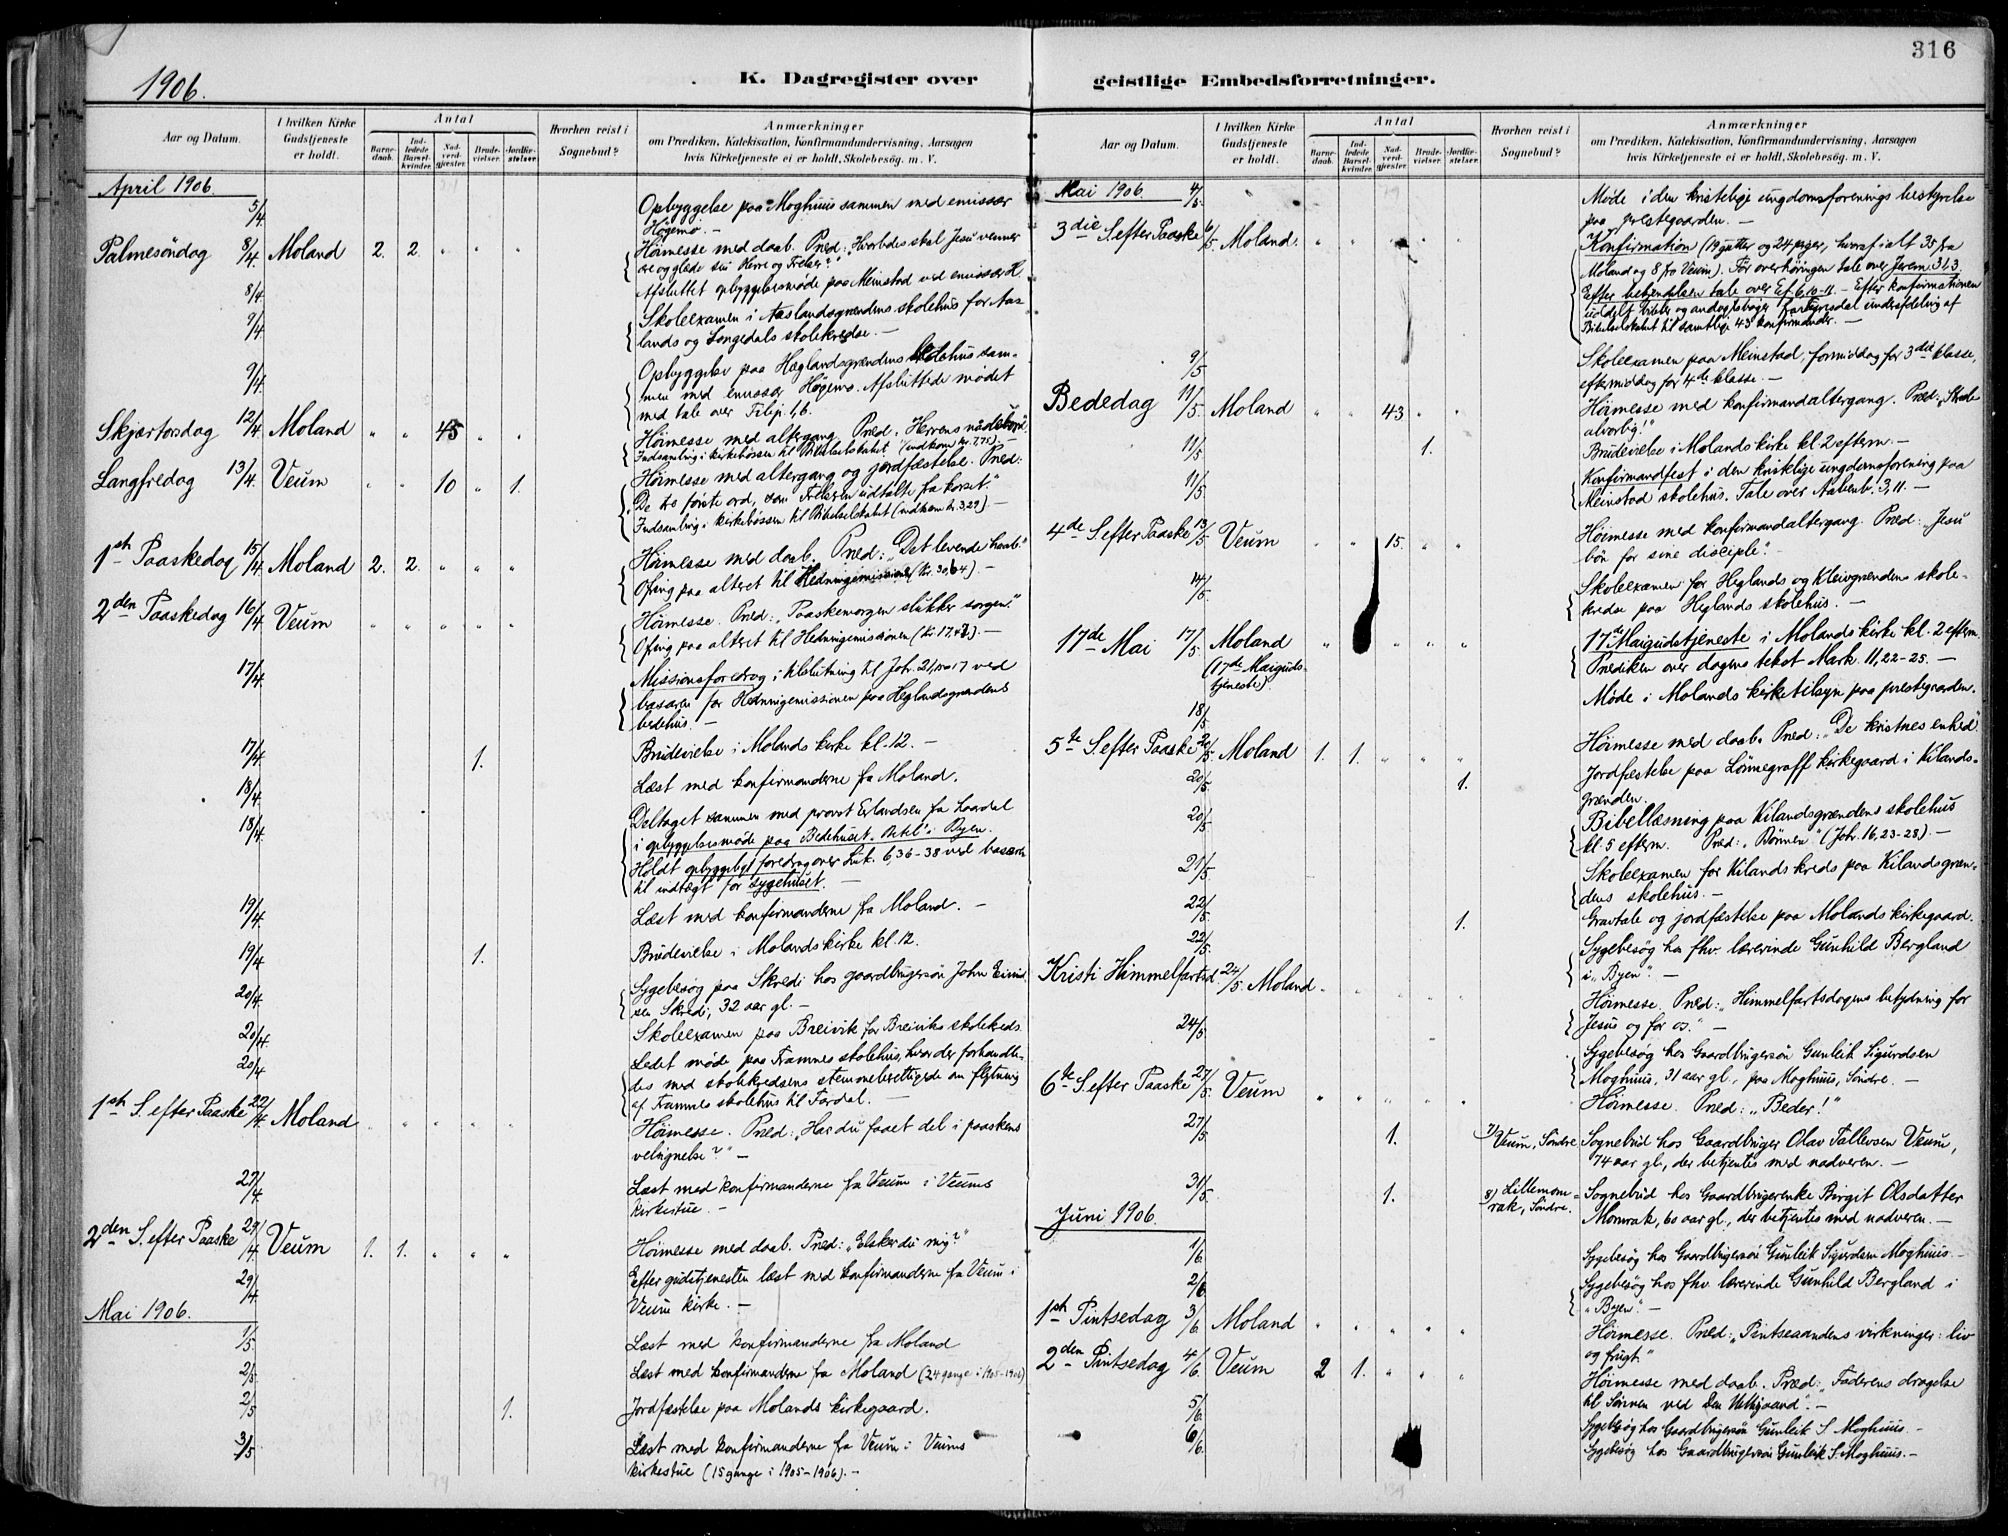 316
1906.
K. Dagregister over
Aar og Datum.
I hvilken Kirke Gudstjeneste er holdt.
Antal
Barnedaab.
Indledede Barselkvinder.
Nadverdgjester.
Brudevielser.
Jordfæstelser.
Hvorhen reist i Sognebud?
Anmærkninger
om Prædiken, Katekisation, Konfirmandundervisning, Aarsagen
hvis Kirketjeneste ei er holdt, Skolebesøg. m. V.
April 1906.
5/4. Opbyggelse paa Moghuus sammen med emissær
Høgemo. —
Palmesöndag 8/4. Moland 2. 2. " " " Höimesse med daab. Præd: "Hvorledes skal Jesu venner
ære og glæde sin Herre og Frelser?"
8/4. Afsluttet opbyggelsesmöde paa Meinstad ved emissær H.
9/4. Skoleexamen i Aaslandsgrændens skolehus for Aas-
lands og Songedals skolekredse. —
9/4. Opbyggelse paa Heglandsgrændens bedehus sam-
men med emissær Høgemo. Afsluttede mödet
med tale over Filip. 1,6.
Skjærtorsdag 12/4. Moland " " 45 " " Höimesse med altergang. Præd. "Herrens nadebord."
Indsamling i kirkebössen til Bibelselskabet (indkom kr. 7,75). —
Langfredag 13/4. Veum " " 10 " 1. Höimesse med altergang og jordfæstelse. Præd:
"De tre förste ord, som Frelseren udtalte fra korset."
Indsamling i kirkebössen til Bibelselskabet (indkom kr. 3,29). —
1ste Paaskedag 15/4. Moland 2. 2. " " " Höimesse med daab. Præd: "Det levende haab."
Ofring paa alteret til Hedningemissionen (kr. 30,64). —
2den Paaskedag 16/4. Veum " " " " " Höimesse. Præd: "Paaskemorgen slukker sorgen."
Ofring paa alteret til Hedningemissionen (kr. 17,47). —
17/4. Missionsforedrag i tilslutning til Joh. 21,15-17 ved
basaren for Hedningemissionen paa Heglandsgrændens
bedehus. —
17/4. 1. Brudevielse i Molands kirke kl. 12. —
18/4. Læst med konfirmanderne fra Moland.
18/4. Deltaget sammen med provst Erlandsen fra Laardal
i opbyggelsesmöde paa Bedehuset "Betel" i Byen.
Holdt opbyggeligt foredrag over Luk. 6,36-38 ved basaren
til indtægt for sygehuset. —
19/4. Læst med konfirmanderne fra Moland. —
19/4. 1. Brudevielse i Molands kirke kl. 12.
20/4. Sygebesög paa Skredi hos gaardbrugersön John Eivind
sen Skredi, 32 aar gl. —
20/4. Skoleexamen paa Breivik for Breiviks skolekreds.
20/4. Ledet möde paa Framnes skolehus, hvor der forhandle-
des med skolekredsens stemmeberettigede om flytning
af Framnes skolehus til Fardal. —
1ste S. efter Paaske 22/4. Moland " " " " " Höimesse. Præd: "Har du faaet del i paaskens
velsignelse?" —
27/4. Læst med konfirmanderne fra Veum i Veums
kirkestue. —
2den S. efter Paaske 29/4. Veum 1. 1. " " " Höimesse med daab. Præd: "Elsker du mig?"
29/4. Efter gudstjenesten læst med konfirmanderne fra Veum i
Veum kirke. —
Mai 1906.
1/5. Læst med konfirmanderne fra Moland
2/5. Læst med konfirmanderne fra Moland (24 gange i 1905-1906)
2/5. 1. Jordfæstelse paa Molands kirkegaard.
3/5. Læst med konfirmanderne fra Veum i Veums
kirkestue (15 gange i 1905-1906). —
geistlige Embedsforretninger.
Aar og Datum.
I hvilken Kirke Gudstjeneste er holdt.
Antal
Barnedaab.
Indledede Barselkvinder.
Nadverdgjester.
Brudevielser.
Jordfæstelser.
Hvorhen reist i Sognebud?
Anmærkninger
om Prædiken, Katekisation, Konfirmandundervisning, Aarsagen
hvis Kirketjeneste ei er holdt, Skolebesøg. m. V.
Mai 1906. 4/5. Möde i den kristelige ungdomsforenings bestyrelse
paa prestegaarden. —
3die S. efter Paaske 6/5 Moland. " " " " " Konfirmation (19 gutter og 24 piger, hvoraf ialt 35 fra
Moland og 8 fra Veum). Før overhöringen tale over Jerem. 31,3.
Efter betjendelsen tale over Ef. 6,10-11. — Efter konfirmationen
uddelt bibler og andagtsböger fra Fyresdal underafdeling af
Bibelselskabet til samtlige 43 konfirmander. —
9/5 Skoleexamen paa Meinstad, formiddag for 3die klasse,
eftermiddag for 4de klasse. —
Bededag 11/5. Moland " " 43 " " Höimesse med konfirmandaltergang. Præd: "Skab
alvorlig!"
11/5. 1. Brudevielse i Molands kirke kl 2 efterm. —
11/5. Konfirmandfest i den kristelige ungdomsforening paa
Meinstad skolehus. Tale over Aabenb. 3,11. —
4de S. efter Paaske 13/5 Veum " " 15. " " Höimesse med konfirmandaltergang. Præd: "Jesu
bön for sine disciple."
14/5. Skoleexamen for Heglands og Kleivgrændens skole-
kredse paa Heglands skolehus. —
17de Mai 17/5. Moland " " " " 17de Maigudstjeneste i Molands kirke kl. 2 efterm.
(17de Maiguds-
tjeneste). Prediken over dagens tekst Mark. 11,22-25. —
18/5. Möde i Molands kirketilsyn paa prestegaarden.
5te S. efter Paaske 20/5. Moland 1. 1. " " " Höimesse med daab. Præd: "De kristnes enhed"
20/5. 1. Jordfæstelse paa Lönnegraff kirkegaard i Kilands-
grænden.
20/5. Bibellæsning paa Kilandsgrændens skolehus
kl. 5 efterm. Præd: "Bönnen" (Joh. 16,23-28). —
21/5. Skoleexamen for Kilands kreds paa Kilandsgræn-
dens skolehus. —
22/5. 1. Gravtale og jordfæstelse paa Molands kirkegaard.
22/5. Sygebesög hos fhv. lærerinde Gunhild Bergland
i "Byen". —
Kristi Himmelfartsd. 24/5. Moland " " " " " Höimesse. Præd: "Himmelfartsdagens betydning for
Jesus og for os." —
24/5. Sygebesög hos Gaardbrugersön Gunleik Sigurdsen
Moghuus, 31 aar gl., paa Moghuus, Söndre. —
6te S. efter Paaske 27/5. Veum " " " " " Höimesse. Præd: "Beder!"
27/5. 1. 7) Veum, Söndre Sognebud hos Gaardbruger Olav Tallevsen Veum,
74 aar gl., der betjentes med nadveren. —
31/5. 1. 8) Lillemom-
rak, Söndre. Sognebud hos Gaardbrugerenke Birgit Olsdatter
Momrak, 60 aar gl., der betjentes med nadveren. —
Juni 1906.
1/6. Sygebesög hos Gaardbrugersön Gunleik Sigurdsen Moghuus. —
2/6. Sygebesög hos fhv. lærerinde Gunhild Bergland i
"Byen". —
1ste Pintsedag 3/6. Moland " " " " " Höimesse. Præd: "Pintseaandens virkninger: liv
og frugt."
2den Pintsedag 4/6. Veum 2 1. " " " Höimesse med daab. Præd: "Faderens dragelse
til Sönnen ved Den Helligaand". —
5/6. Sygebesög hos Gaardbrugersön Gunleik S. Moghuus. —
6/6. Sygebesög hos Gaardbrugersön Gunleik S. Moghuus. —